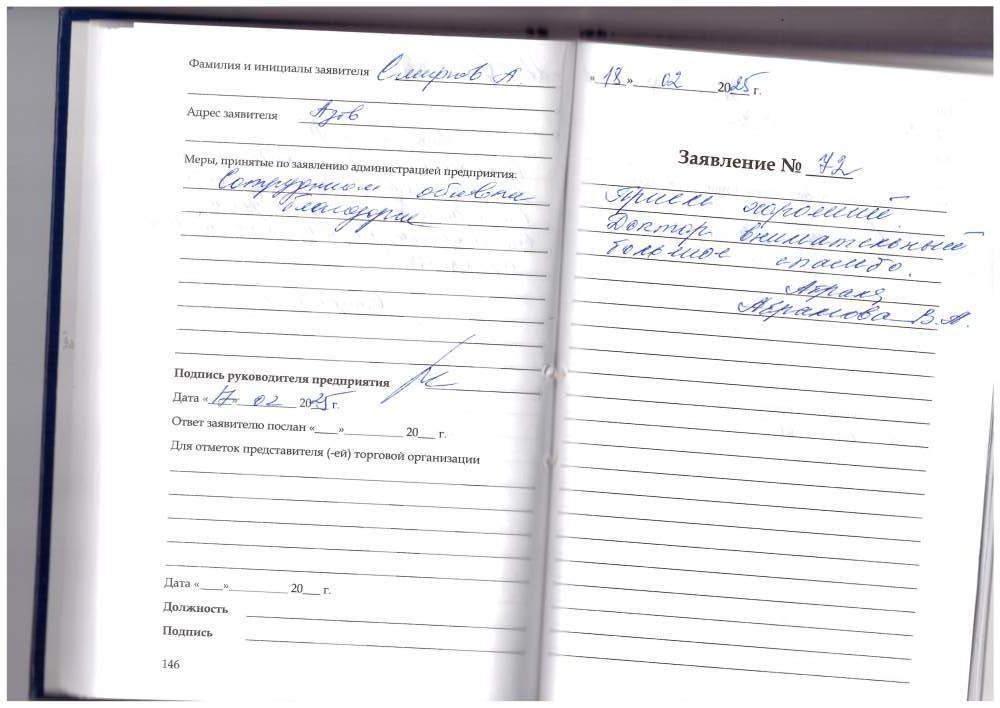 Фамилия и инициалы заявителя Смирнов А
Адрес заявителя Азов
Меры, принятые по заявлению администрацией предприятия:
Сотрудникам объявлена
благодарн
Подпись руководителя предприятия
Дата «17» 02 2025 г.
Ответ заявителю послан «___»__________ 20___ г.
Для отметок представителя (-ей) торговой организации
Дата «____»__________ 20___ г.
Должность
Подпись
146
«18» 02 2025 г.
Заявление № 72
Прием хороший
Доктор внимательный
большое спасибо.
Абрамова В.А.